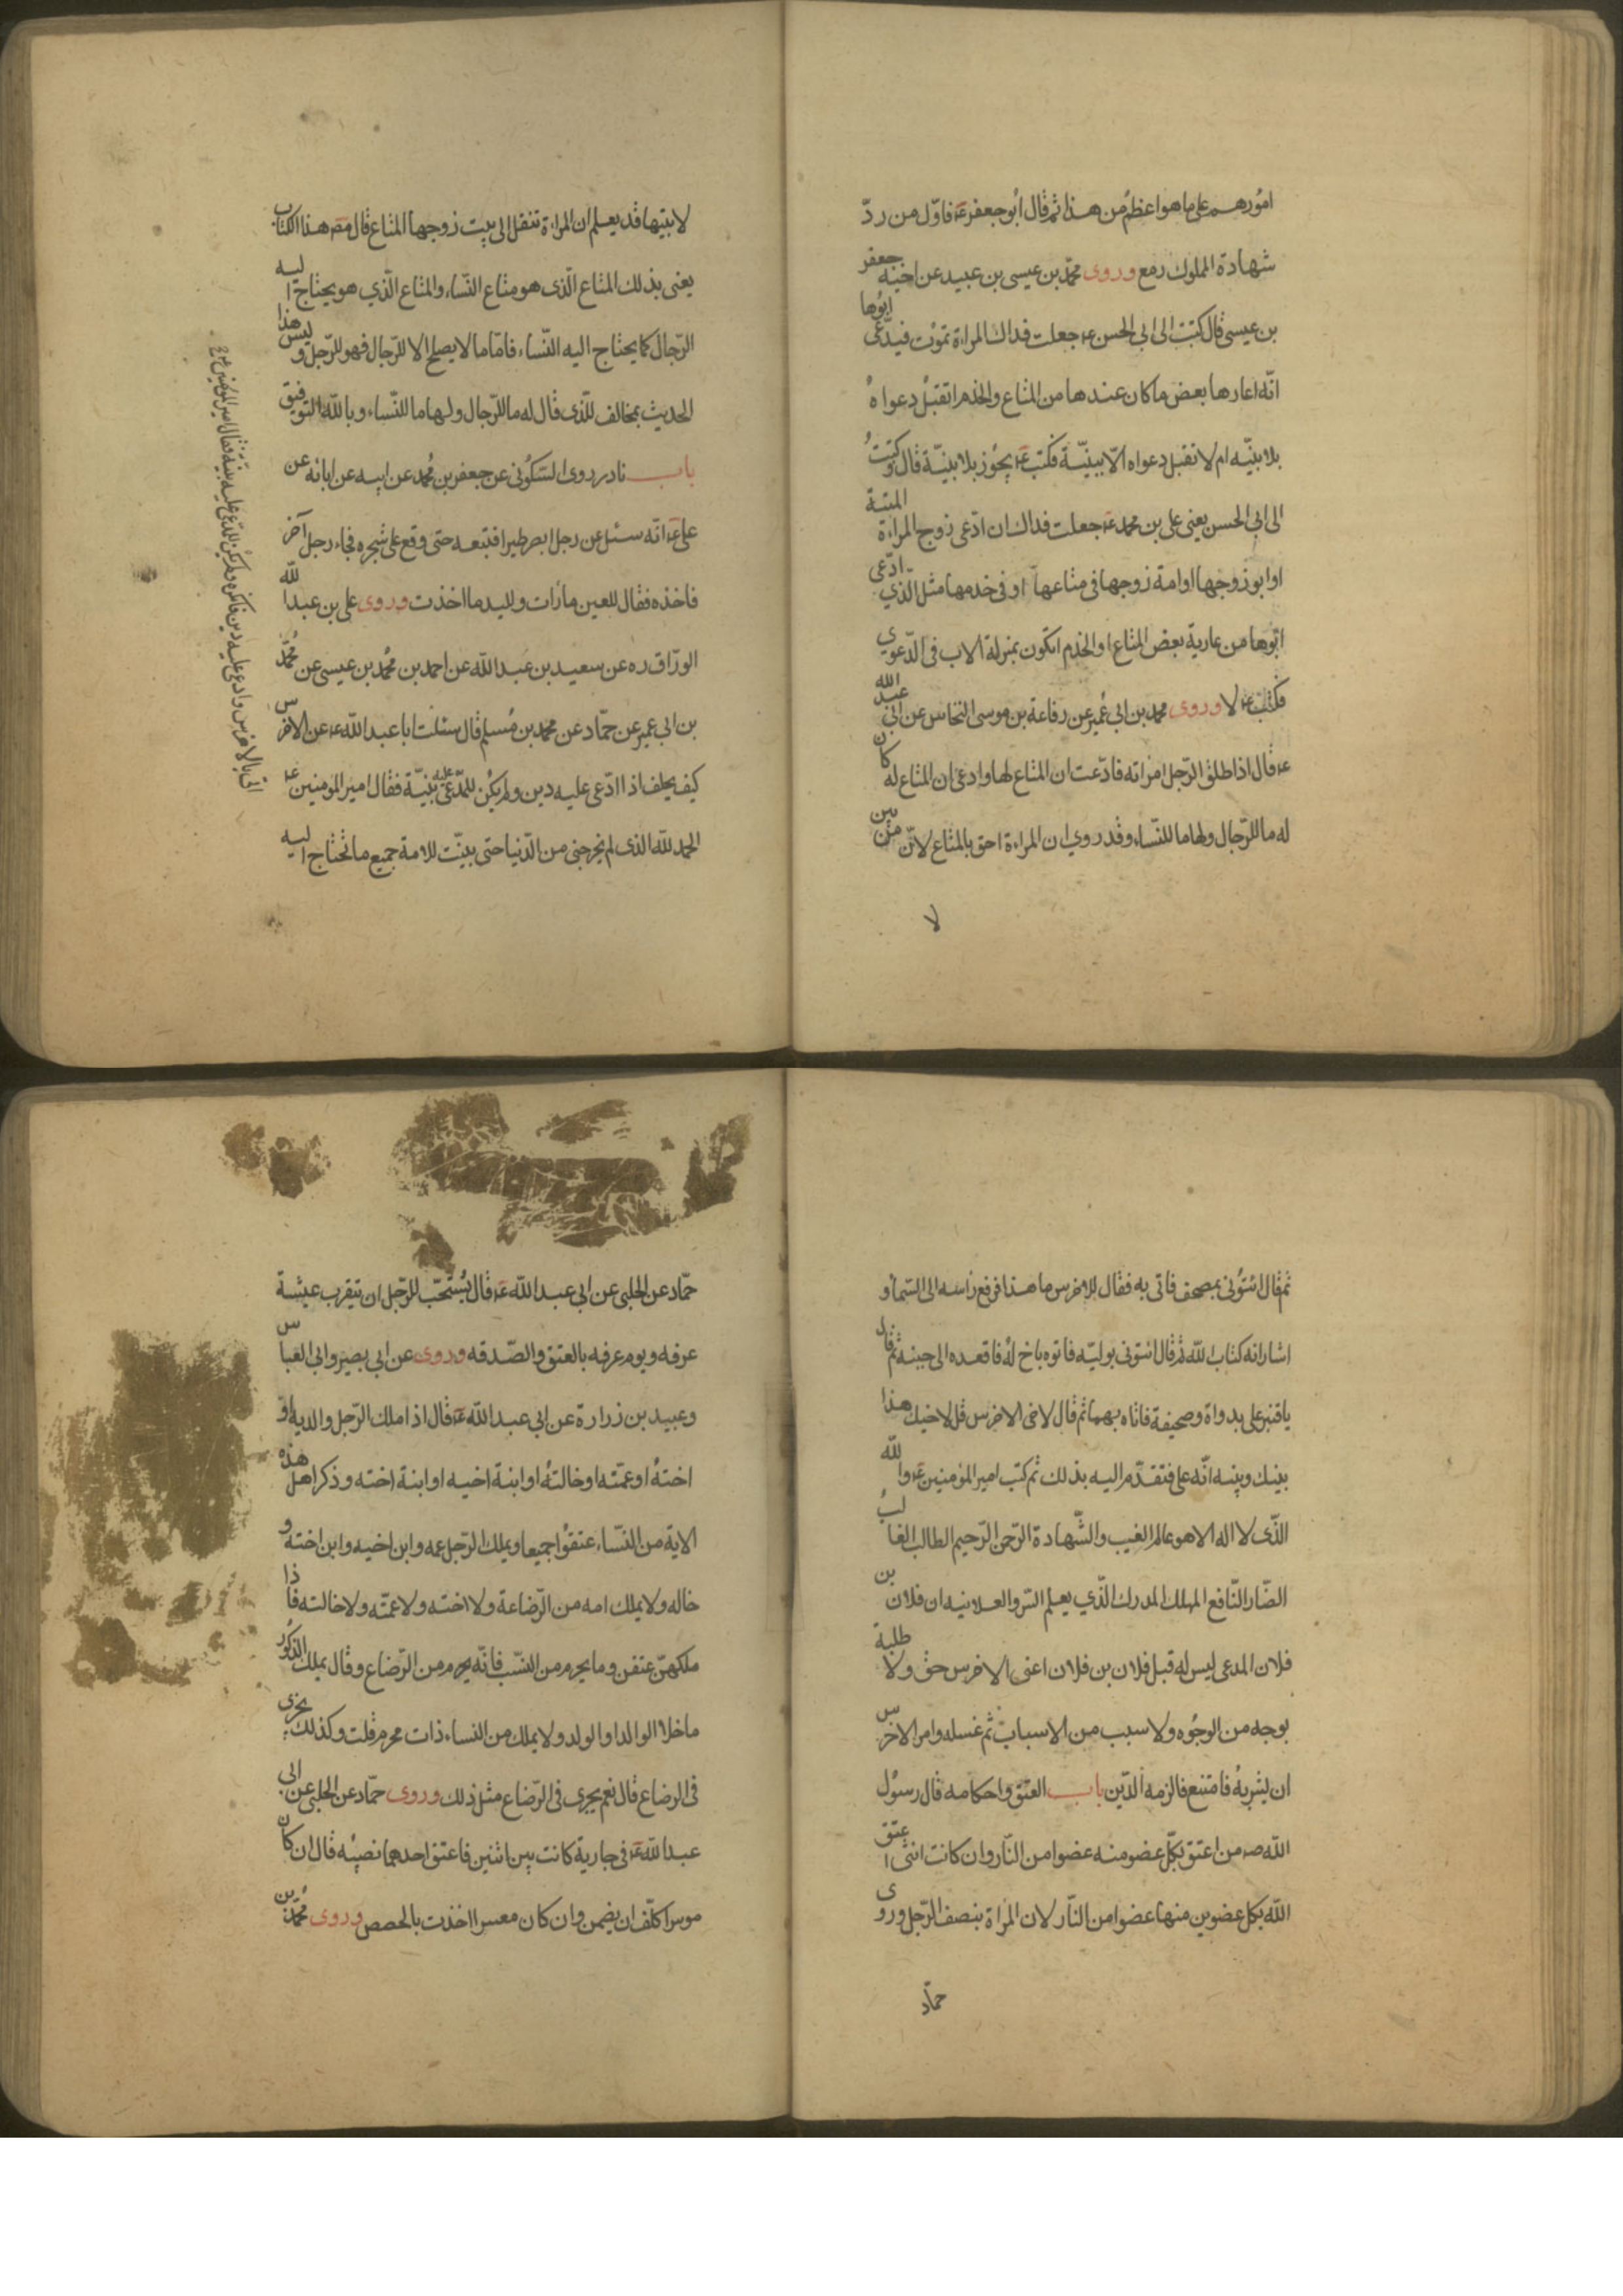 امورهم على ما هو اعظم من هذا ثم قال ابو جعفر ع فاوّل من ردّ
شهادة المملوك رمع وروى محمّد بن عيسى بن عبيد عن اخيه جعفر
بن عيسى قال كتبت الى ابي الحسن ع جعلت فداك المراة تموت فيدّعى ابوها
انّه اعارها بعض ما كان عندها من المتاع والخدم اتقبل دعواه
بلا بيّنه ام لا تقبل دعواه الّا ببيّنة فكتب ع يجوز بلا بيّنة قال وكتبت
الى ابي الحسن يعنى على بن محمد ع جعلت فداك ان ادّعى زوج المراة الميتة
او ابو زوجها او امة زوجها في متاعها او في خدمها مثل الّذي ادّعى
ابوها من عارية بعض المتاع او الخدم اتكون بمنزلة الاب في الدّعوي
فكتب ع لا وروى محمد بن ابي عمير عن رفاعة بن موسى النحاس عن ابي عبد الله
ع قال اذا طلق الرّجل امراته فادّعت ان المتاع لها وادعى ان المتاع له كان
له ما للرّجال ولها ما للنّساء وقد روي ان المراءة احق بالمتاع لانّ من بين
لا
لابتيها قد يعلم ان المراءة تنقل الى بيت زوجها المتاع قال مص هذا الكتاب
يعنى بذلك المتاع الّذى هو متاع النّساء والمتاع الّذي هو يحتاج اليه
الرّجال كما يحتاج اليه النّساء فامّا ما لا يصلح الا للرّجال فهو للرّجل وليس هذا
الحديث بمخالف للّذى قال له ما للرّجال ولها ما للنّساء وبالله التوفيق
باب نادر روى السّكوني عن جعفر بن محمد عن ابيه عن ابائه عن
على ع انّه سئل عن رجل ابصر طيرا فتبعه حتى وقع على شجره فجاء رجل آخر
فاخذه فقال للعين ما رأت ولليد ما اخذت وروى على بن عبد الله
الورّاق ره عن سعيد بن عبد الله عن احمد بن محمد بن عيسى عن محمّد
بن ابي عمير عن حمّاد عن محمد بن مسلم قال سئلت ابا عبد الله ع عن الاخرس
كيف يحلف اذا ادّعى عليه دين ولم يكن للمدّعى عليه بيّنة فقال امير المومنين ع
الحمد لله الذى لم يخرجنى من الدّنيا حتى بيّنت للامة جميع ما تحتاج اليه
اتى بالاخرس وادعى عليه دين فانكره ولم يكن للمدّعى عليه بيّنة فقال امير المؤمنين ع
ثم قال ائتونى بمصحف فاتى به فقال للاخرس ما هذا فرفع راسه الى السّماء و
اشار انه كتاب الله ثم قال ائتونى بوليّه فاتوه باخ له فاقعده الى جنبه ثم قال
يا قنبر على بدواة وصحيفة فاتاه بهما ثم قال لاخى الاخرس قل لاخيك هذا
بينك وبينه انّه على فتقدّم اليه بذلك ثم كتب امير المؤمنين ع والله
الذّى لا اله الا هو عالم الغيب والشّهادة الرّحمن الرّحيم الطالب الغالب
الضّار النّافع المهلك المدرك الّذي يعلم السّر والعلانيه ان فلان بن
فلان المدعى ليس له قبل فلان بن فلان اعنى الاخرس حق ولا طلبة
بوجه من الوجوه ولا سبب من الاسباب ثم غسله وامر الاخرس
ان يشربه فامتنع فالزمه الدّين باب العتق واحكامه قال رسول
الله ص من اعتق بكلّ عضو منه عضوا من النّار وان كانت انثى اعتق
الله بكل عضوين منها عضوا من النّار لان المراة بنصف الرّجل وروى
حمّاد
حمّاد عن الحلبى عن ابي عبد الله ع قال يستحبّ للرّجل ان يتقرب عشية
عرفه ويوم عرفه بالعتق والصّدقه وروى عن ابي بصير وابى العباس
وعبيد بن زرارة عن ابي عبد الله ع قال اذا ملك الرّجل والديه او
اخته او عمّته او خالته او ابنة اخيه او ابنة اخته وذكر اهل هذه
الاية من النّساء عتقوا جميعا ويملك الرّجل عمه وابن اخيه وابن اخته و
خاله ولا يملك امه من الرّضاعة ولا اخته ولا عمّته ولا خالته فاذا
ملكهنّ عتقن وما يحرم من النسب فانّه يحرم من الرّضاع وقال يملك الذكور
ما خلا الوالد او الولد ولا يملك من النساء ذات محرم قلت وكذلك يجرى
فى الرضاع قال نعم يجرى فى الرّضاع مثل ذلك وروى حمّاد عن الحلبى عن ابى
عبد الله ع فى جارية كانت بين اثنين فاعتق احدهما نصيبه قال ان كان
موسرا كلّف ان يضمن وان كان معسرا اخذت بالحصص وروى محمّد بن